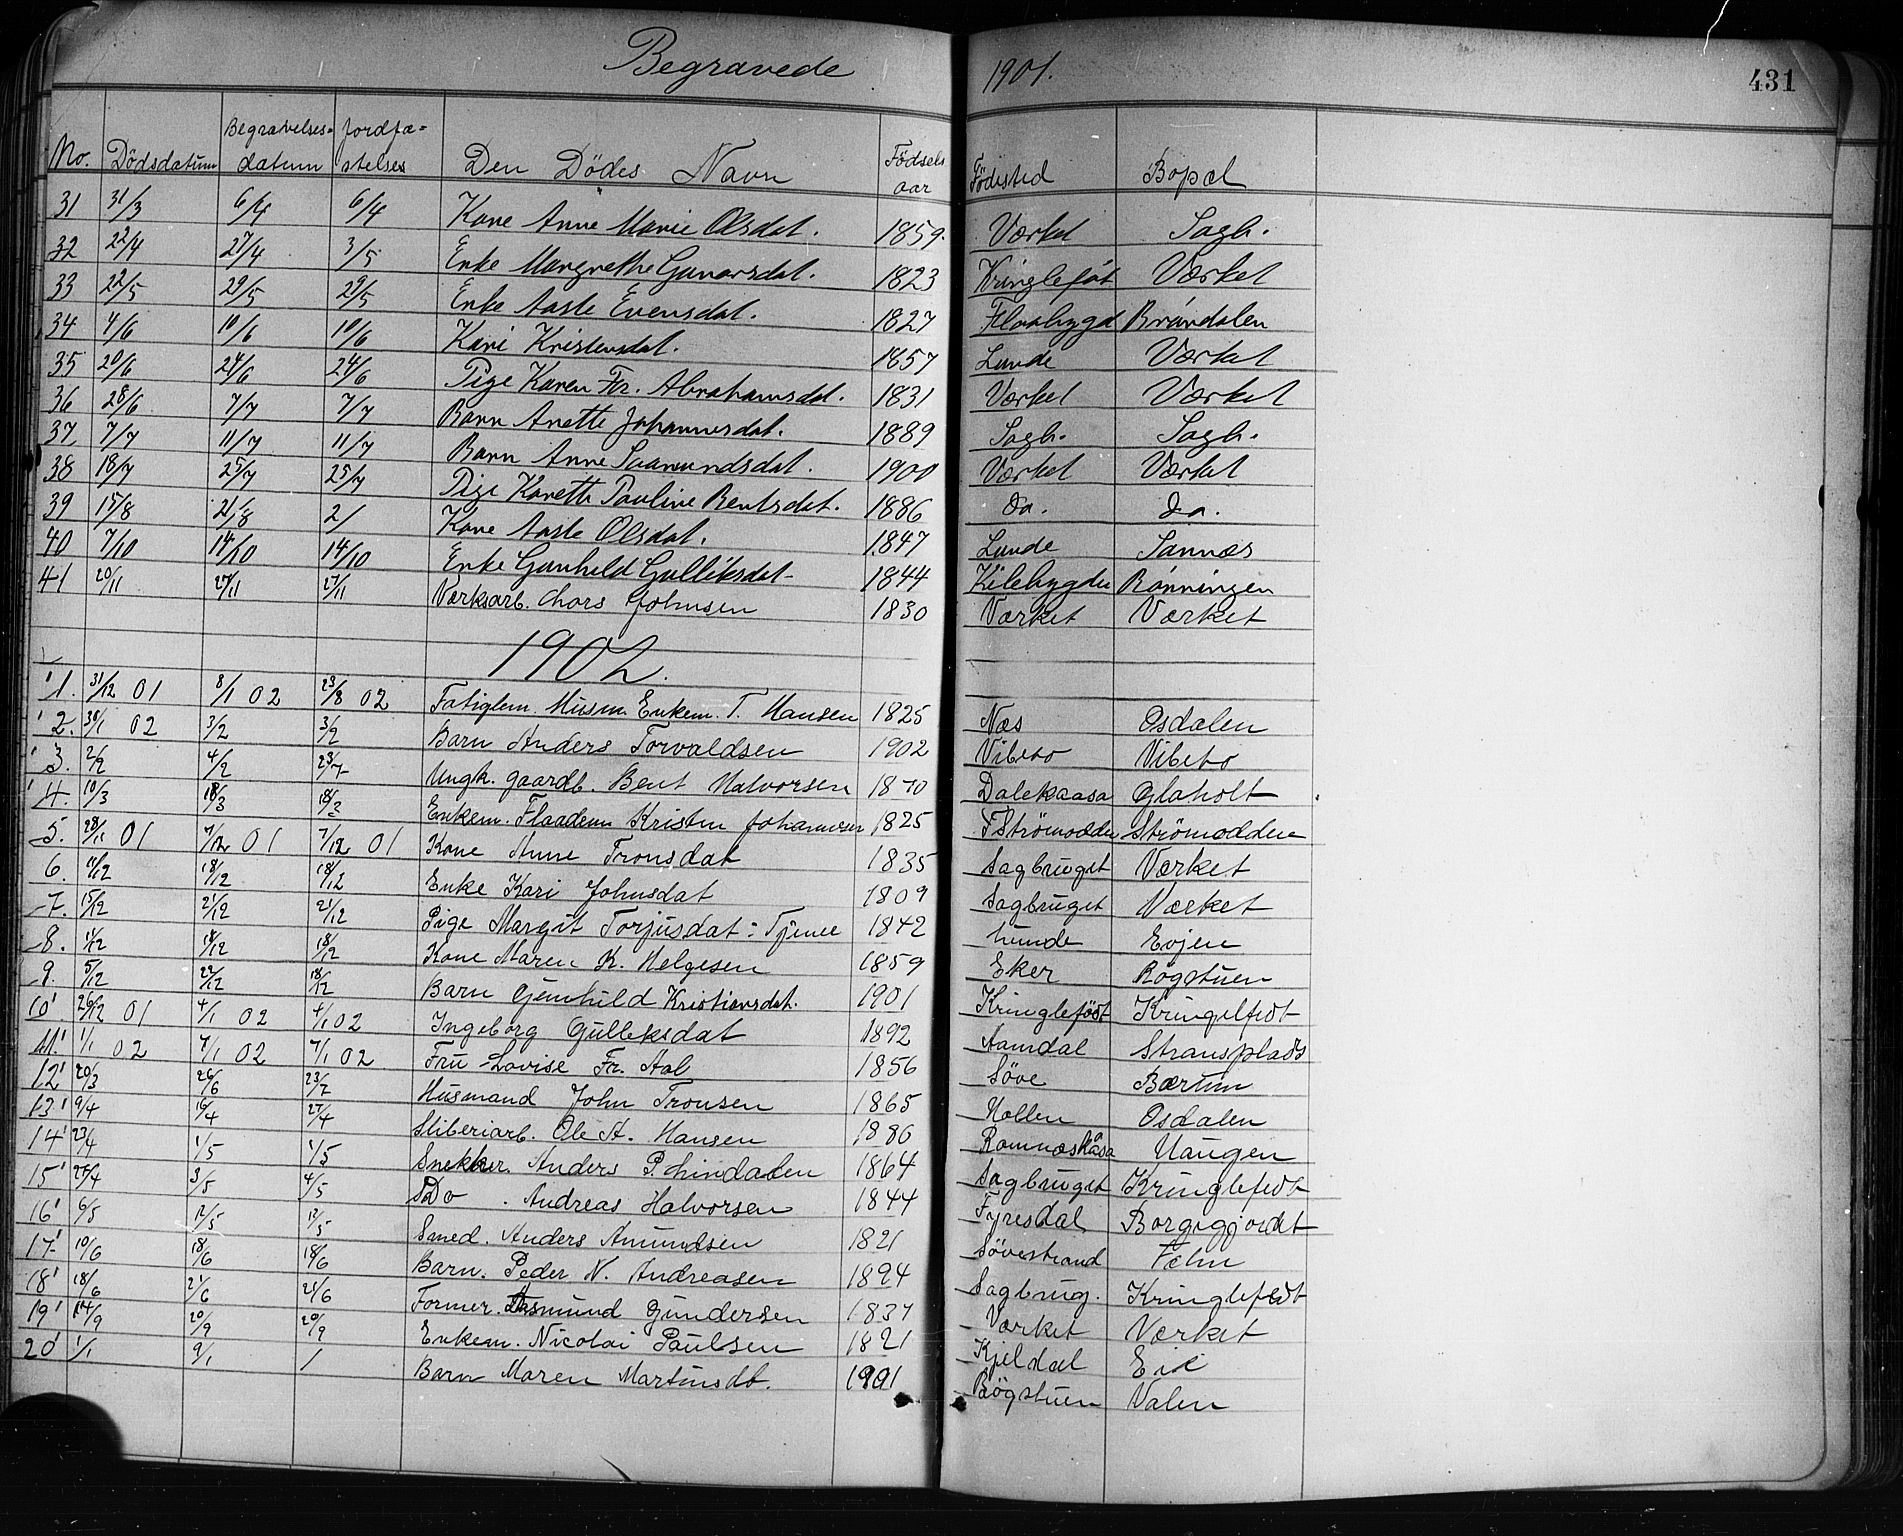 Begravede 1901. 431
No. Dödsdatum Begravelses=datum Jordfæ=stelses Den Dödes Navn Födsels aar Födested Bopæl
31 31/3 6/4 6/4 Kone Anne Marie Olsdat. 1859. Værket Sagb.
32 22/4 27/4 3/5 Enke Margrethe Gunarsdat. 1823 Kringlefót Værket
33 22/5 29/5 29/5 Enke Aaste Evensdat. 1827 Flaabygd Bråndalen
34 4/6 10/6 10/6 Kari Kristensdat. 1857 Lunde Værket
35 20/6 24/6 24/6 Pige Karen Fr. Abrahamsdat. 1831 Værket Værket
36 28/6 7/7 7/7 Barn Anette Johannesdat. 1889 Sagb. Sagb.
37 7/7 11/7 11/7 Barn Anne Saamundsdat. 1900 Værket Værket
38 18/7 25/7 25/7 Pige Karette Pauline Bentsdat. 1886 Do. Do.
39 15/8 21/8 2/ Kone Aaste Olsdat. 1847 Lunde Sannæs
40 7/10 14/10 14/10 Enke Gunhild Gulliksdat- 1844 Kilebygden Rønningen
41 20/11 27/11 27/11 Værksarb. Lars Johnsen 1830 Værket Værket
1902.
1. 31/12 01 8/1 02 23/8 02 Fatiglem. Husm. Enkem. T. Hansen 1825 Næs Osdalen
2. 30/1 02 3/2 3/2 Barn Anders Torvaldsen 1902 Vibeto Vibeto
3. 2/2 4/2 23/7 Ungk. gaardb. Bent Halvorsen 1870 Dalekaasa Glaholt
4. 10/3 18/3 18/3 Enkem. Flaadem Kristen Johannesen 1825 Strömodden Strömodden
5. 28/11 01 7/12 01 7/12 01 Kone Anne Tronsdat 1835 Sagbruget Værket
6. 11/12 18/12 18/12 Enke Kari Johnsdat 1809 Sagbruget Værket
7. 15/12 21/12 21/12 Pige Margit Torjusdat: Tjenee 1842 Lunde Evjen
8. 11/12 18/12 18/12 Kone Maren K. Helgesen 1859 Eker Rögstuen
9. 5/12 22/12 18/12 Barn Gunhild Kristiansdat. 1901 Kringlefödt Kringelfedt
10 26/12 01 4/1 02 4/1 02 Ingeborg Gulleksdat 1892 Aamdal Stransplads
11. 1/1 02 7/1 02 7/1 02 Fru Lovise Fr. Aal 1856 Söve Bærum
12 20/3 26/6 23/7 Husmand John Tronsen 1865 Hollen Osdalen
13 9/4 16/4 27/4 Sliberiarb. Ole A. Hansen 1886 Romnæskåsa Haugen
14 23/4 1/5 1/5 Snekker. Anders P. Lindalen 1864 Sagbruget Kringlefedt
15 27/4 3/5 4/5 Do . Andreas Halvorsen 1844 Fyresdal Borgegjordet
16 6/5 12/5 12/5 Smed. Anders Amundsen 1821 Sövestrand Tehn
17 10/6 18/6 18/6 Barn. Peder N. Andreasen 1894 Sagbrug. Kringlefedt
18 18/6 21/6 21/6 Former. Asmund Gundersen 1837 Værket Værket
19 14/9 20/9 20/9 Enkem. Nicolai Paulsen 1821 Kjeldal Eie
20 1/1 9/1 / Barn Maren Martinsdt. 1901 Bögstuen Valen